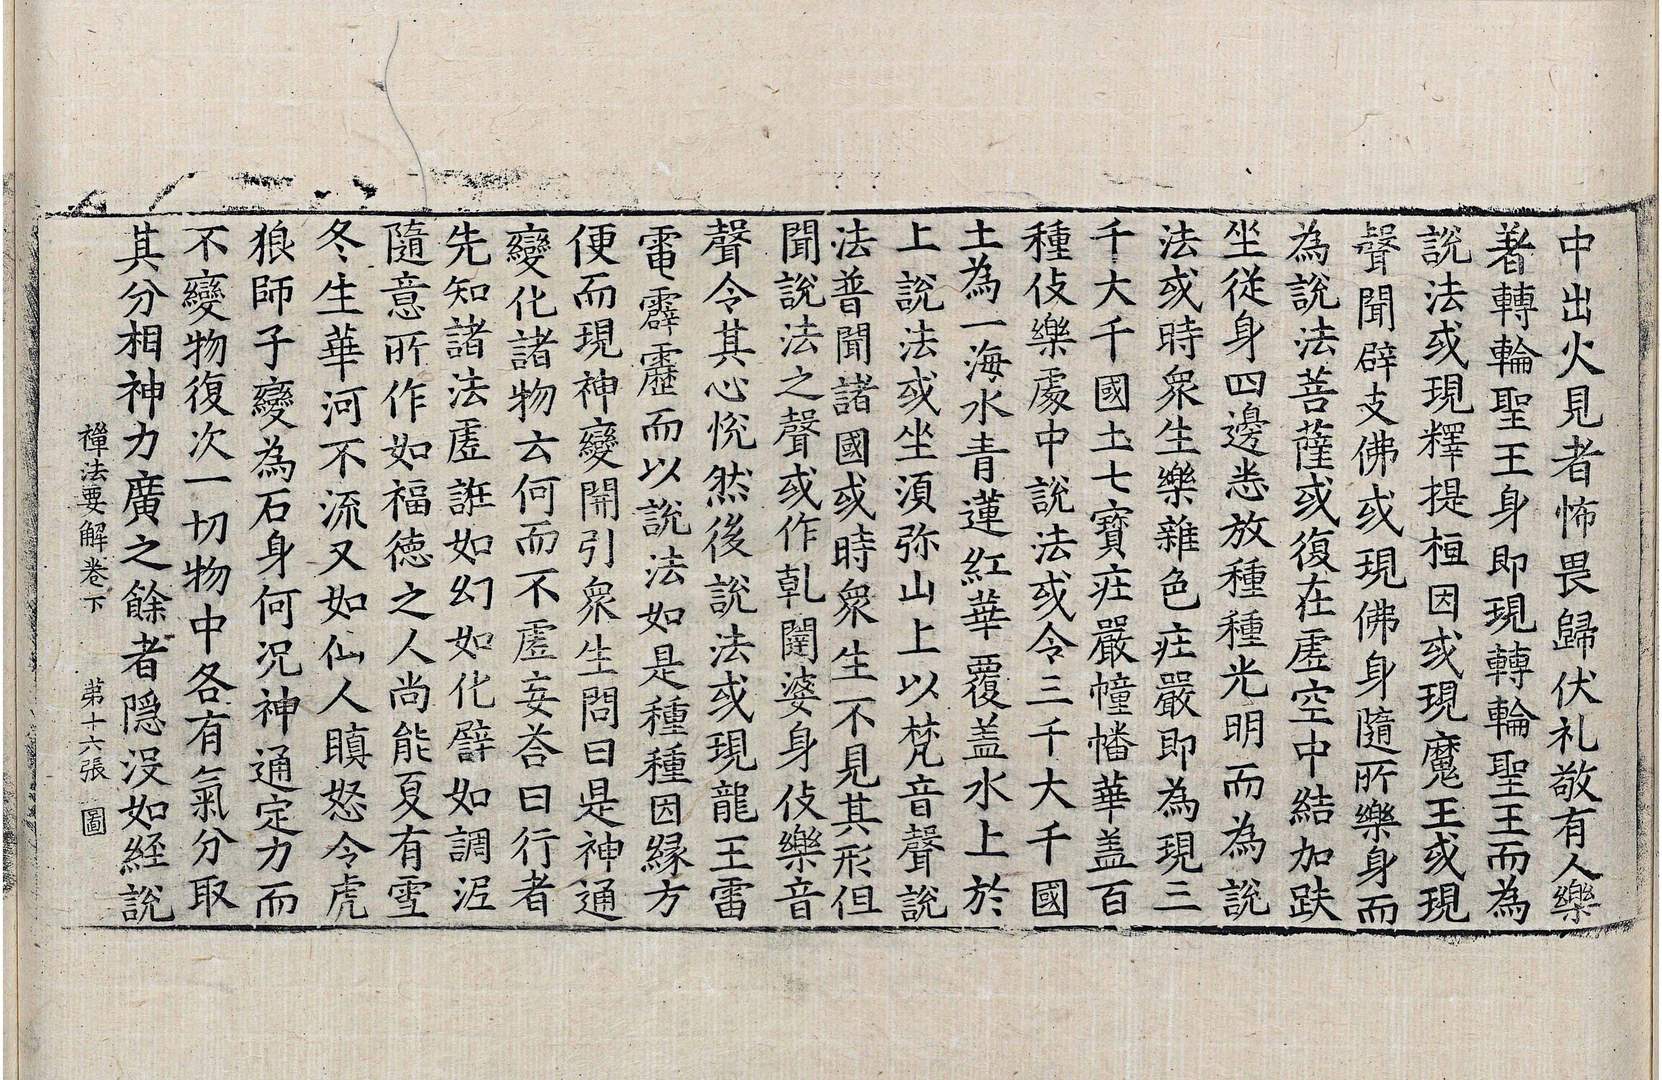 中出火見者怖畏歸伏礼敬有人樂
著轉輪聖王身即現轉輪聖王而為
說法或現釋提桓因或現魔王或現
聲聞辟支佛或現佛身隨所樂身而
為說法菩薩或復在虛空中結加趺
坐從身四邊悉放種種光明而為說
法或時衆生樂雜色庄嚴即為現三
千大千國土七寶庄嚴幢幡華盖百
種伎樂處中說法或令三千大千國
土為一海水青蓮紅華覆盖水上於
上說法或坐湏弥山上以梵音聲說
法普聞諸國或時衆生不見其形但
聞說法之聲或作乹闥婆身伎樂音
聲令其心恱然後說法或現龍王雷
電霹靂而以說法如是種種因緣方
便而現神變開引衆生問曰是神通
變化諸物云何而不虛妄荅曰行者
先知諸法虛誑如幻如化譬如調泥
隨意所作如福德之人尚能夏有雪
冬生華河不流又如仙人瞋怒令虎
狼師子變為石身何況神通定力而
不變物復次一切物中各有氣分取
其分相神力廣之餘者隱沒如經說
禪法要解卷下 第十六張 圖